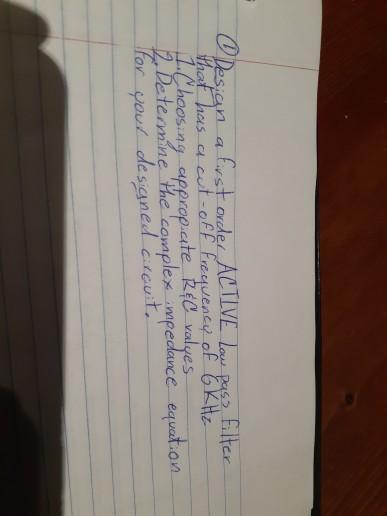 ① Design a first order ACTIVE Low pass filter
that has a cut-off frequency of 6KHz
1. Choosing appropiate R&C values
2. Determine the complex impedance equation
for your designed circuit.